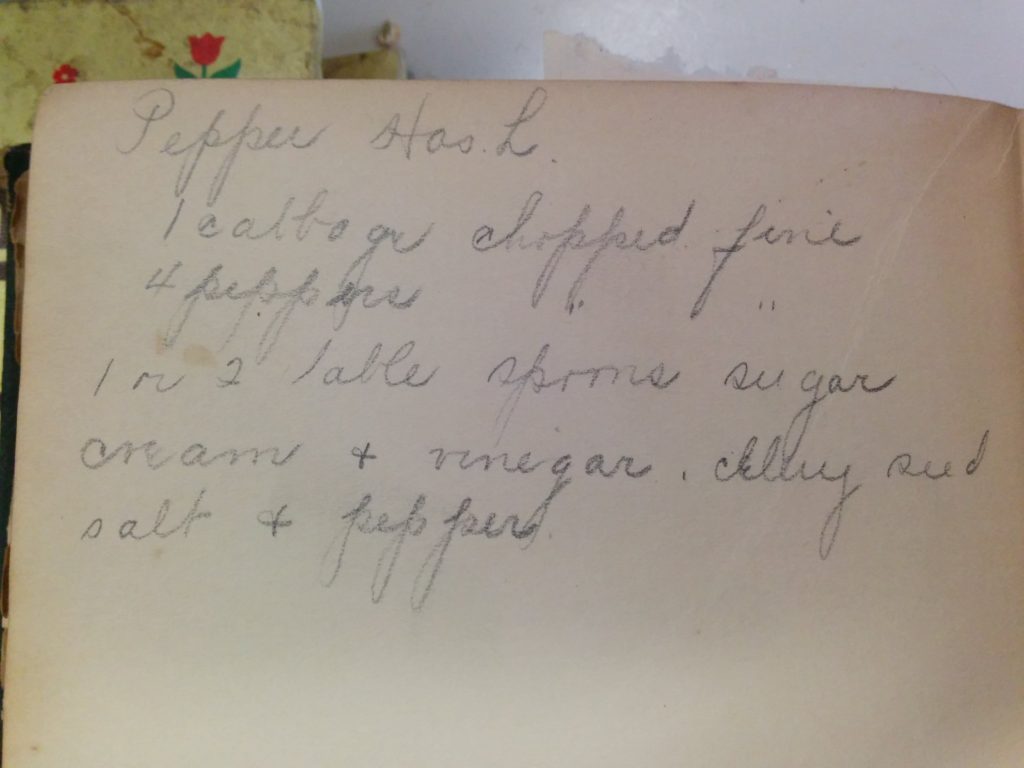 Pepper Hash.
1 cabbage chopped fine
4 peppers " "
1 or 2 table spoons sugar
cream + vinegar. Celery seed
salt + pepper.